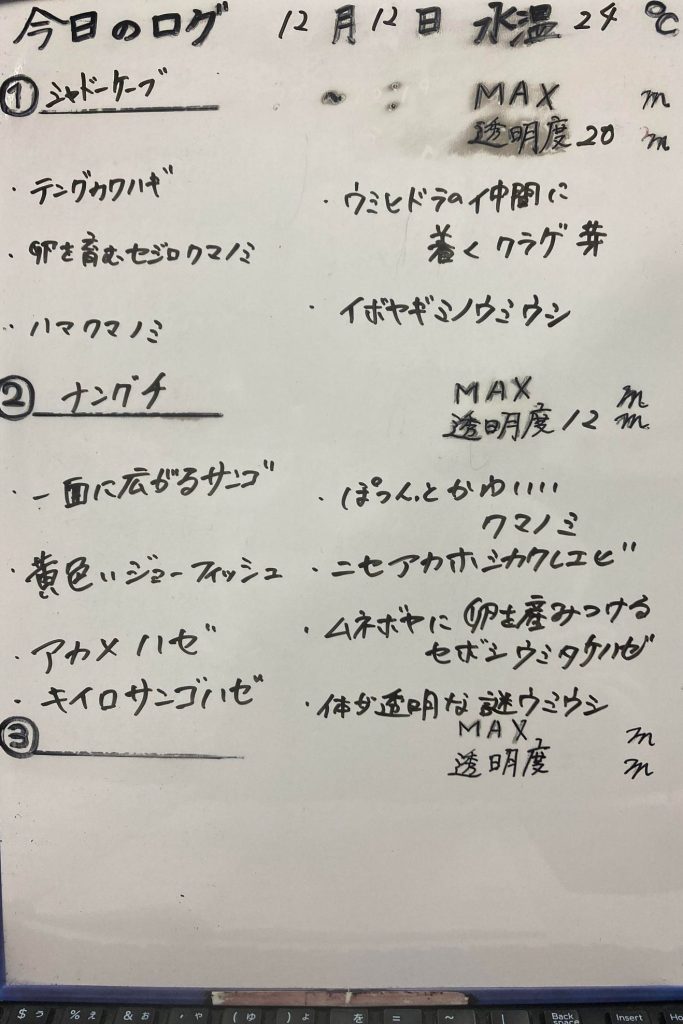 今日のログ 12月12日 水温 24 ℃
① シャドーケーブ
MAX m
透明度 20 m
・テングカワハギ
・卵を育むセジロクマノミ
・ハマクマノミ
・ウミヒドラの仲間に
着くクラゲ芽
・イボヤギミノウミウシ
② ナングチ
MAX m
透明度 12 m
・一面に広がるサンゴ
・黄色いジョーフィッシュ
・アカメハゼ
・キイロサンゴハゼ
・ぽつんとかゆいい
クマノミ
・ニセアカホシカクレエビ
・ムネボヤに卵を産みつける
セボシウミタケハゼ
・体が透明な謎ウミウシ
③
MAX m
透明度 m
$ う % え & お ' や ( ゆ ) よ を = ~ | Back space Insert Ho